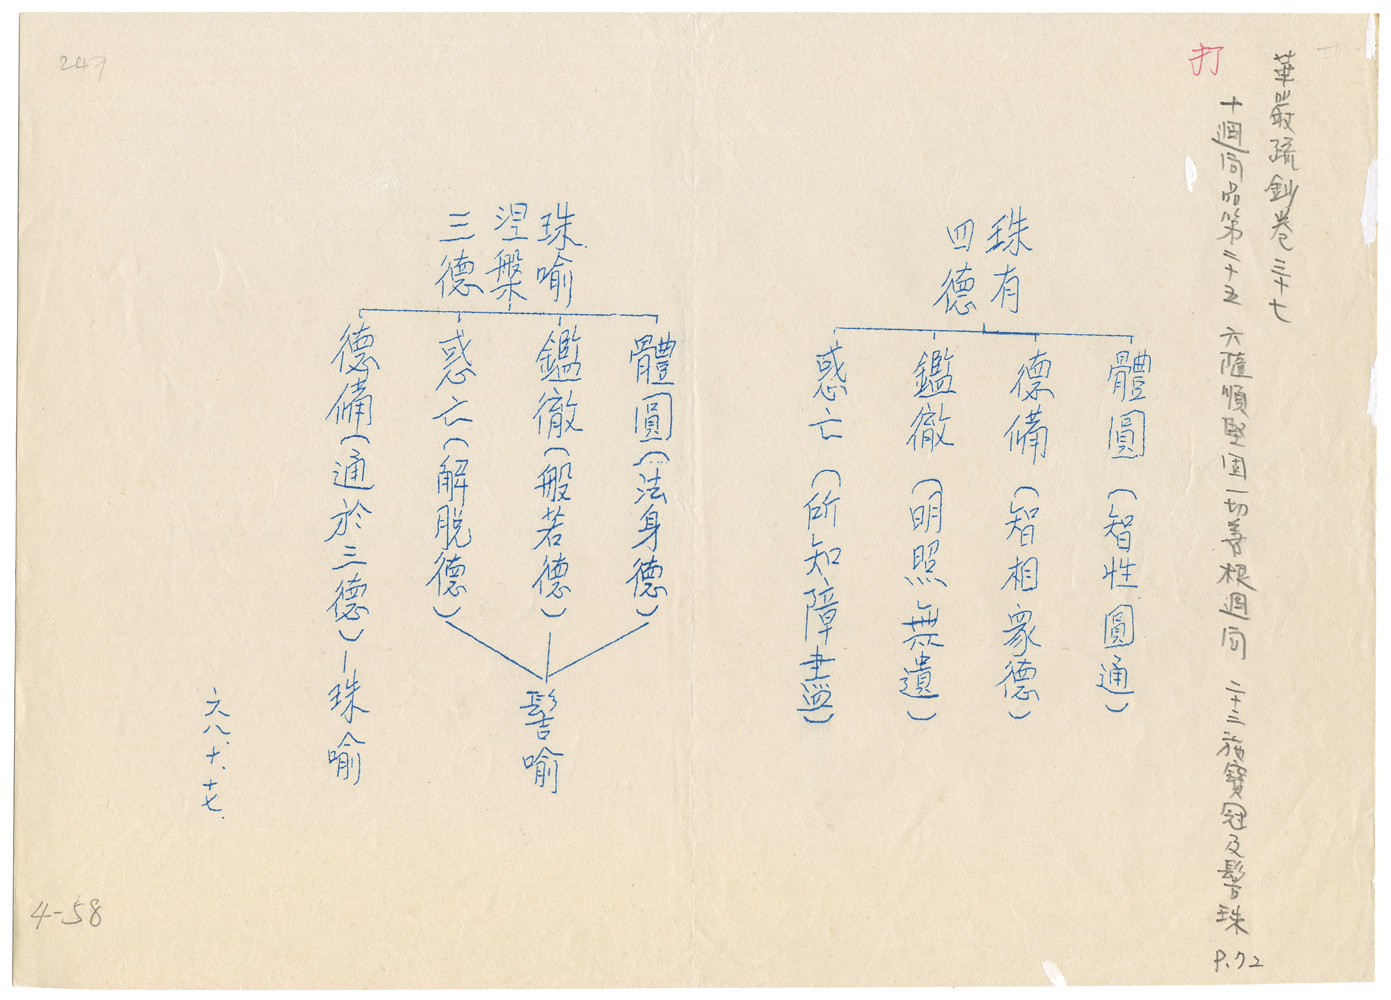 華嚴疏鈔卷三十七
打
十迴向品第二十五 六隨順堅固一切善根迴向 二十三施寶冠及髻珠 P.72
珠有
四德
體圓(智性圓通)
德備(智相眾德)
鑑徹(明照無遺)
惑亡(所知障盡)
珠喻
涅槃
三德
體圓(法身德)
鑑徹(般若德)
惑亡(解脫德)
髻喻
德備(通於三德)-珠喻
六八.十.十七.
247
4-58